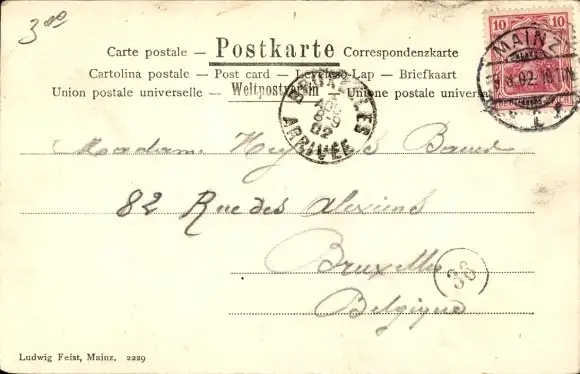 3.00
10 10
MAINZ
8.02
Carte postale — Postkarte — Correspondenzkarte
Cartolina postale — Post card — Levelező-Lap — Briefkaart
Union postale universelle — Weltpostverein — Unione postale universale
BRUXELLES
ARRIVÉE
Madame
82 Rue des Alexiens
Bruxelles
36
Belgique
Ludwig Feist, Mainz. 2229